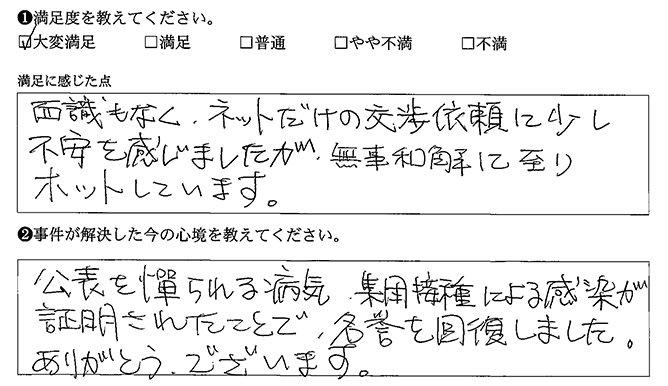 ❶満足度を教えてください。
☑大変満足 □満足 □普通 □やや不満 □不満
満足に感じた点
面識もなく、ネットだけの交渉依頼に少し
不安を感じましたが、無事和解に至り
ホットしています。
❷事件が解決した今の心境を教えてください。
公表を憚られる病気、集団接種による感染が
証明されたことで、名誉を回復しました。
ありがとう、ございます。